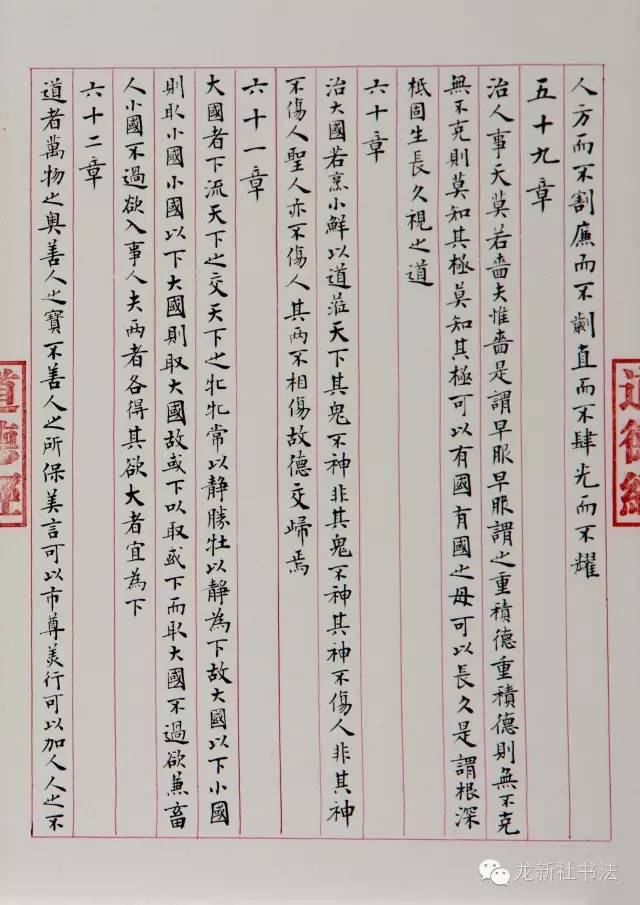 人方而不割廉而不劌直而不肆光而不耀
五十九章
治人事天莫若嗇夫惟嗇是謂早服早服謂之重積德重積德則無不克
無不克則莫知其極莫知其極可以有國有國之母可以長久是謂根深
柢固生長久視之道
六十章
治大國若烹小鮮以道蒞天下其鬼不神非其鬼不神其神不傷人非其神
不傷人聖人亦不傷人其兩不相傷故德交歸焉
六十一章
大國者下流天下之交天下之牝牝常以靜勝牡以靜為下故大國以下小國
則取小國小國以下大國則取大國故或下以取或下而取大國不過欲兼畜
人小國不過欲入事人夫兩者各得其欲大者宜為下
六十二章
道者萬物之奧善人之寶不善人之所保美言可以市尊美行可以加人人之不
道德經
道德經
龙新社书法